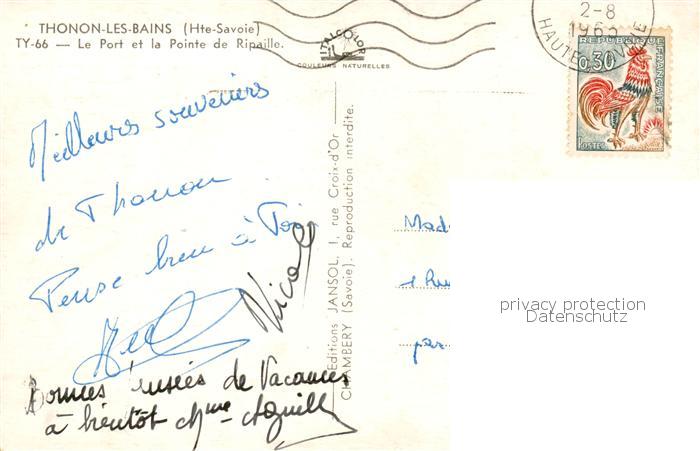 THONON-LES-BAINS (Hte-Savoie)
TY-66 — Le Port et la Pointe de Ripaille.
ITALCOLOR
COULEURS NATURELLES
2-8
1965
HAUTE SAVOIE
REPUBLIQUE FRANÇAISE
0,30
POSTES
Meilleurs souvenirs
de Thonon
Pense bien à Toi
Nicole
Bonnes de Vacances
à bientôt Mme
Editions JANSOL, 1, rue Croix-d'Or
CHAMBERY (Savoie). Reproduction interdite.
Mad
par
privacy protection
Datenschutz